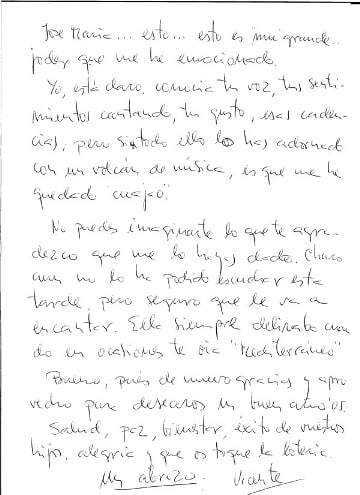 José María... esto... esto es muy grande..
joder que me he emocionado.
Yo, está claro, conocía tu voz, tus senti-
mientos cantando, tu gusto, esas caden-
cias, pero si todo ello lo has adornado
con un volcán de música, es que me he
quedado "cuajao".
No puedes imaginarte lo que te agra-
dezco que me lo hayas dado. Charo
aun no lo ha podido escuchar esta
tarde, pero seguro que le va a
encantar. Ella siempre deliraba cuan-
do en ocasiones te oía "Mediterráneo"
Bueno, pués de nuevo gracias y apro
vecho para desearos un buen año '05.
Salud, paz, bienestar, éxito de vuestros
hijos, alegría y que os toque la lotería.
Un abrazo. Vicente